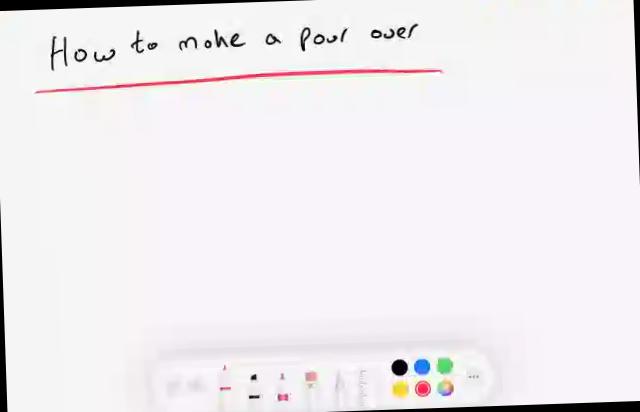 How to make a pour over